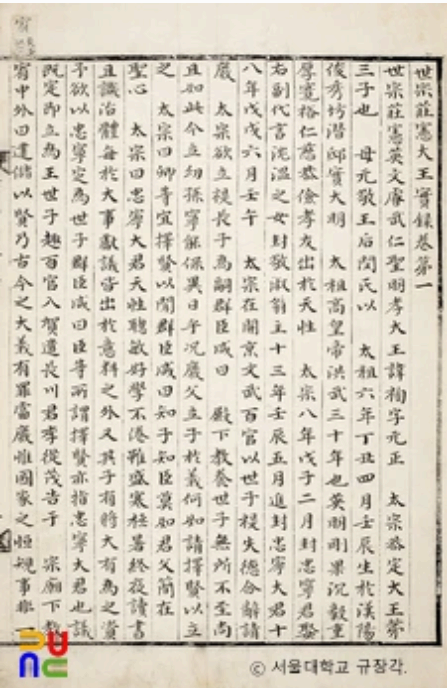 世宗莊憲大王實錄卷第一
世宗莊憲英文睿武仁聖明孝大王諱祹字元正 太宗恭定大王第
三子也 母元敬王后閔氏以 太祖六年丁丑四月壬辰生於漢陽
俊秀坊潛邸實大明 太祖高皇帝洪武三十年也英明剛果沉毅重
厚寬裕仁慈恭儉孝友出於天性 太宗八年戊子二月封忠寧君娶
右副代言沈溫之女封敬淑翁主十三年壬辰五月進封忠寧大君十
八年戊戌六月壬午 太宗在開京文武百官以世子禔失德合辭請
廢 太宗欲立禔長子爲嗣群臣咸曰 殿下敎養世子無所不至尙
且如此今立幼孫寧能保異日乎况廢父立子於義何如請擇賢以立
之 太宗曰卿等宜擇賢以聞群臣咸曰知子知臣莫如君父簡在
聖心 太宗曰忠寧大君天性聰敏好學不倦雖盛寒極暑終夜讀書
且識治體每於大事獻議皆出於意料之外又其子有將大有爲之資
予欲以忠寧定爲世子群臣咸曰臣等所謂擇賢亦指忠寧大君也議
旣定卽立爲王世子趣百官入賀遣長川君李從茂告于 宗廟下敎
宥中外曰建儲以賢乃古今之大義有罪當廢惟國家之恒規事非一
ⓒ 서울대학교 규장각.